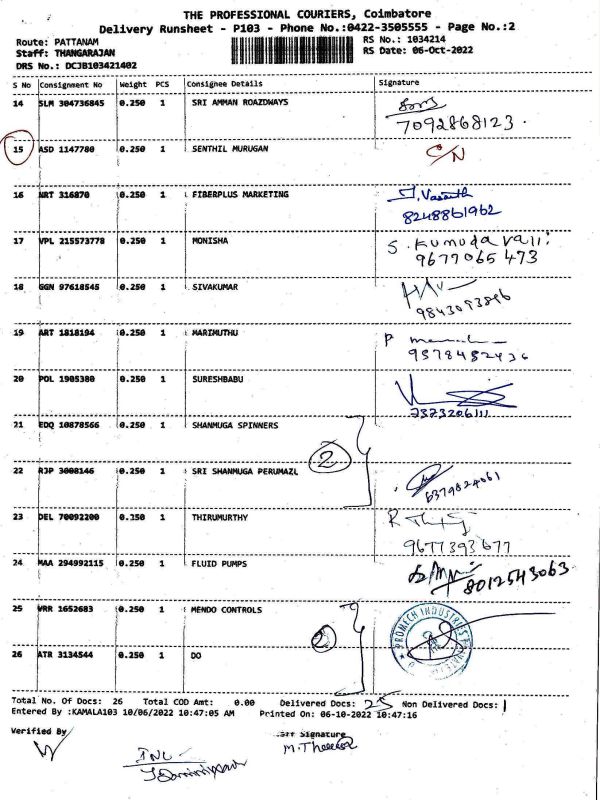 THE PROFESSIONAL COURIERS, Coimbatore
Delivery Runsheet - P103 - Phone No.:0422-3505555 - Page No.:2
Route: PATTANAM RS No.: 1034214
Staff: THANGARAJAN RS Date: 06-Oct-2022
DRS No.: DCJB103421402
S No Consignment No Weight PCS Consignee Details Signature
14 SLM 304736845 0.250 1 SRI AMMAN ROAZDWAYS
7092868123.
15 ASD 1147780 0.250 1 SENTHIL MURUGAN C/N
16 NRT 316870 0.250 1 FIBERPLUS MARKETING J. Vasanth
8248861962
17 VPL 215573778 0.250 1 MONISHA S. Kumudavalli
9677065473
18 GGN 97618545 0.250 1 SIVAKUMAR
9843093896
19 ART 1818194 0.250 1 MARIMUTHU P
9578482436
20 POL 1905380 0.250 1 SURESHBABU
7373206111
21 EDQ 10878566 0.250 1 SHANMUGA SPINNERS
2
22 RJP 3008146 0.250 1 SRI SHANMUGA PERUMAZL
6379824061
23 DEL 70092200 0.150 1 THIRUMURTHY
9677393677
24 MAA 294992115 0.250 1 FLUID PUMPS
8012543063
25 VRR 1652683 0.250 1 MENDO CONTROLS
2 PROMECH INDUSTRIES
26 ATR 3134544 0.250 1 DO
Total No. Of Docs: 26 Total COD Amt: 0.00 Delivered Docs: 25 Non Delivered Docs: 1
Entered By :KAMALA103 10/06/2022 10:47:05 AM Printed On: 06-10-2022 10:47:16
Verified By Signature